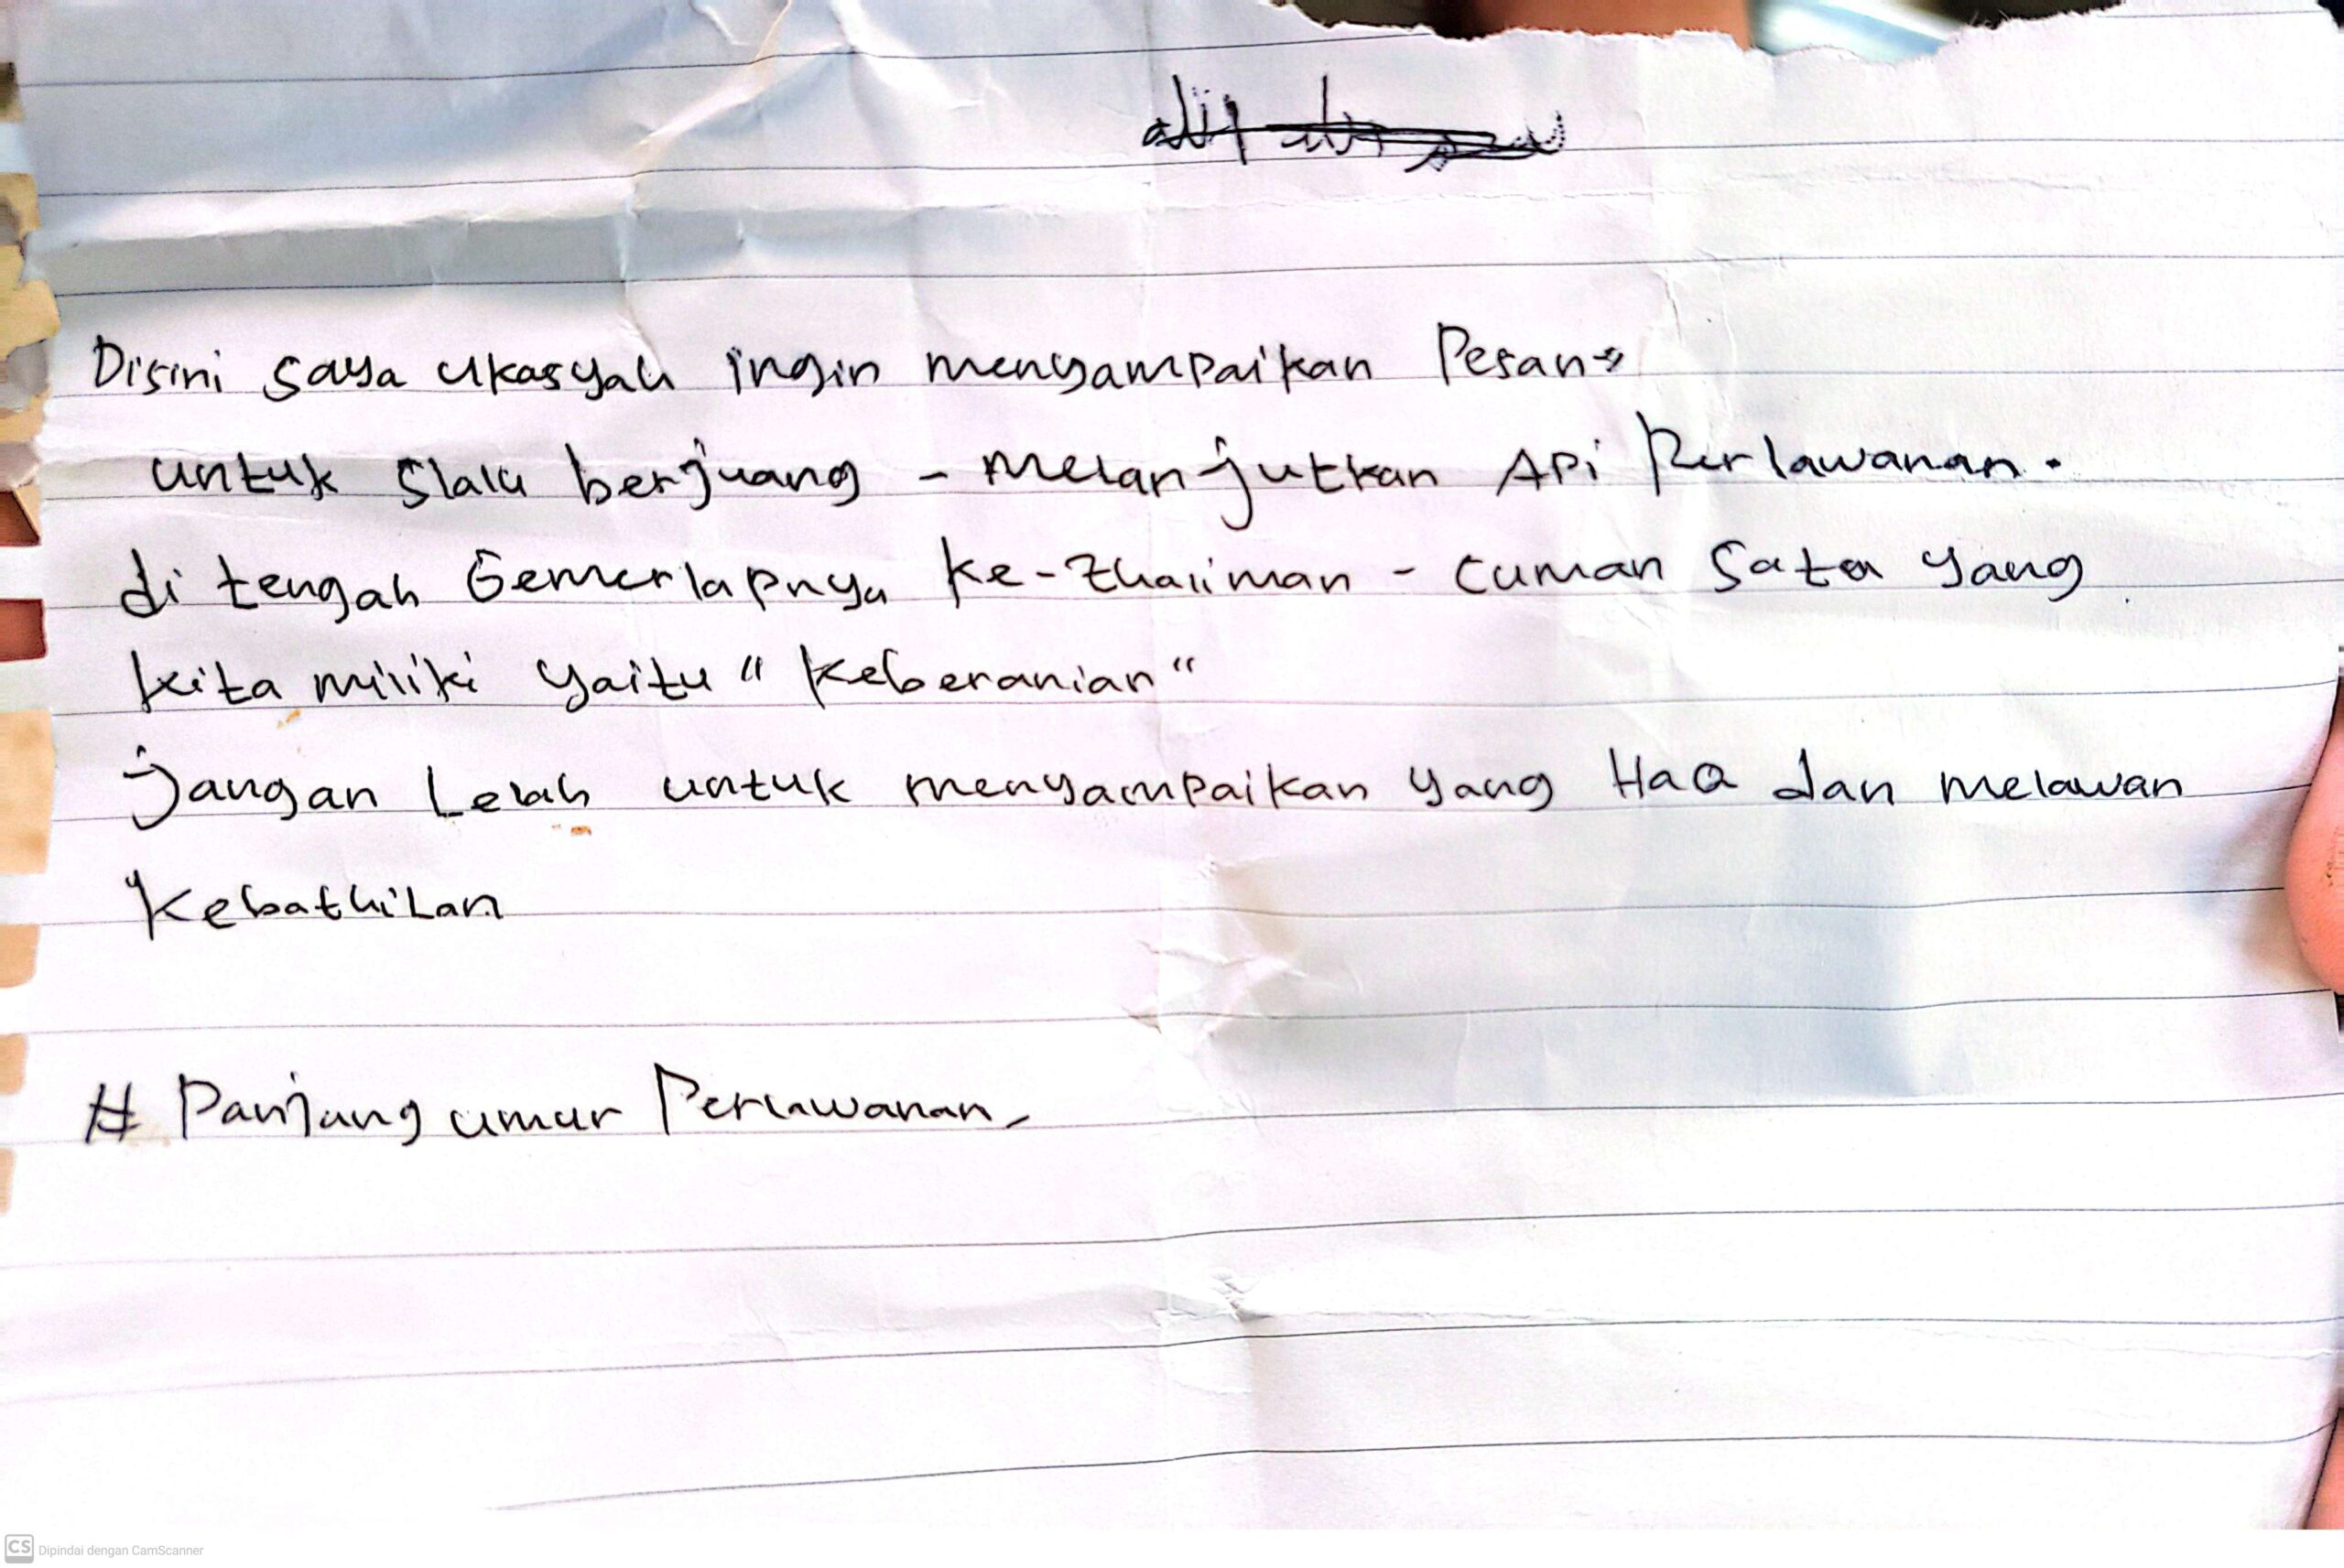 Disini saya ukasyah ingin menyampaikan Pesan"
untuk slalu berjuang - Melanjutkan Api Perlawanan.
di tengah Gemerlapnya Ke-Zhaliman - Cuman Satu yang
kita miliki yaitu "Keberanian"
jangan Lelah untuk menyampaikan yang HaQ dan melawan
Kebathilan
# Panjang umur Perlawanan
CS Dipindai dengan CamScanner